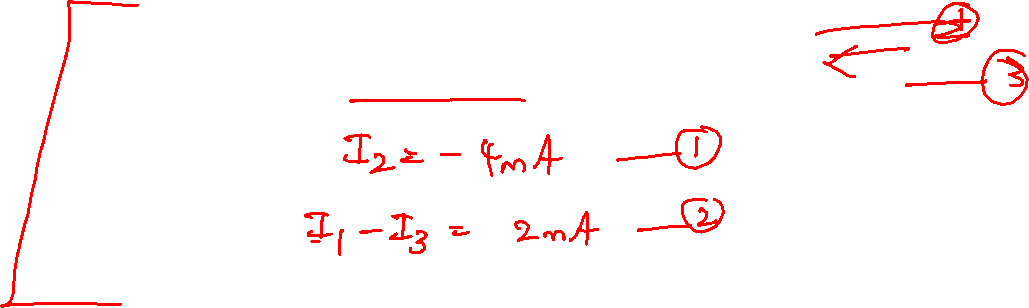 ③
I₂ = - 4mA — ①
I₁ - I₃ = 2mA — ②